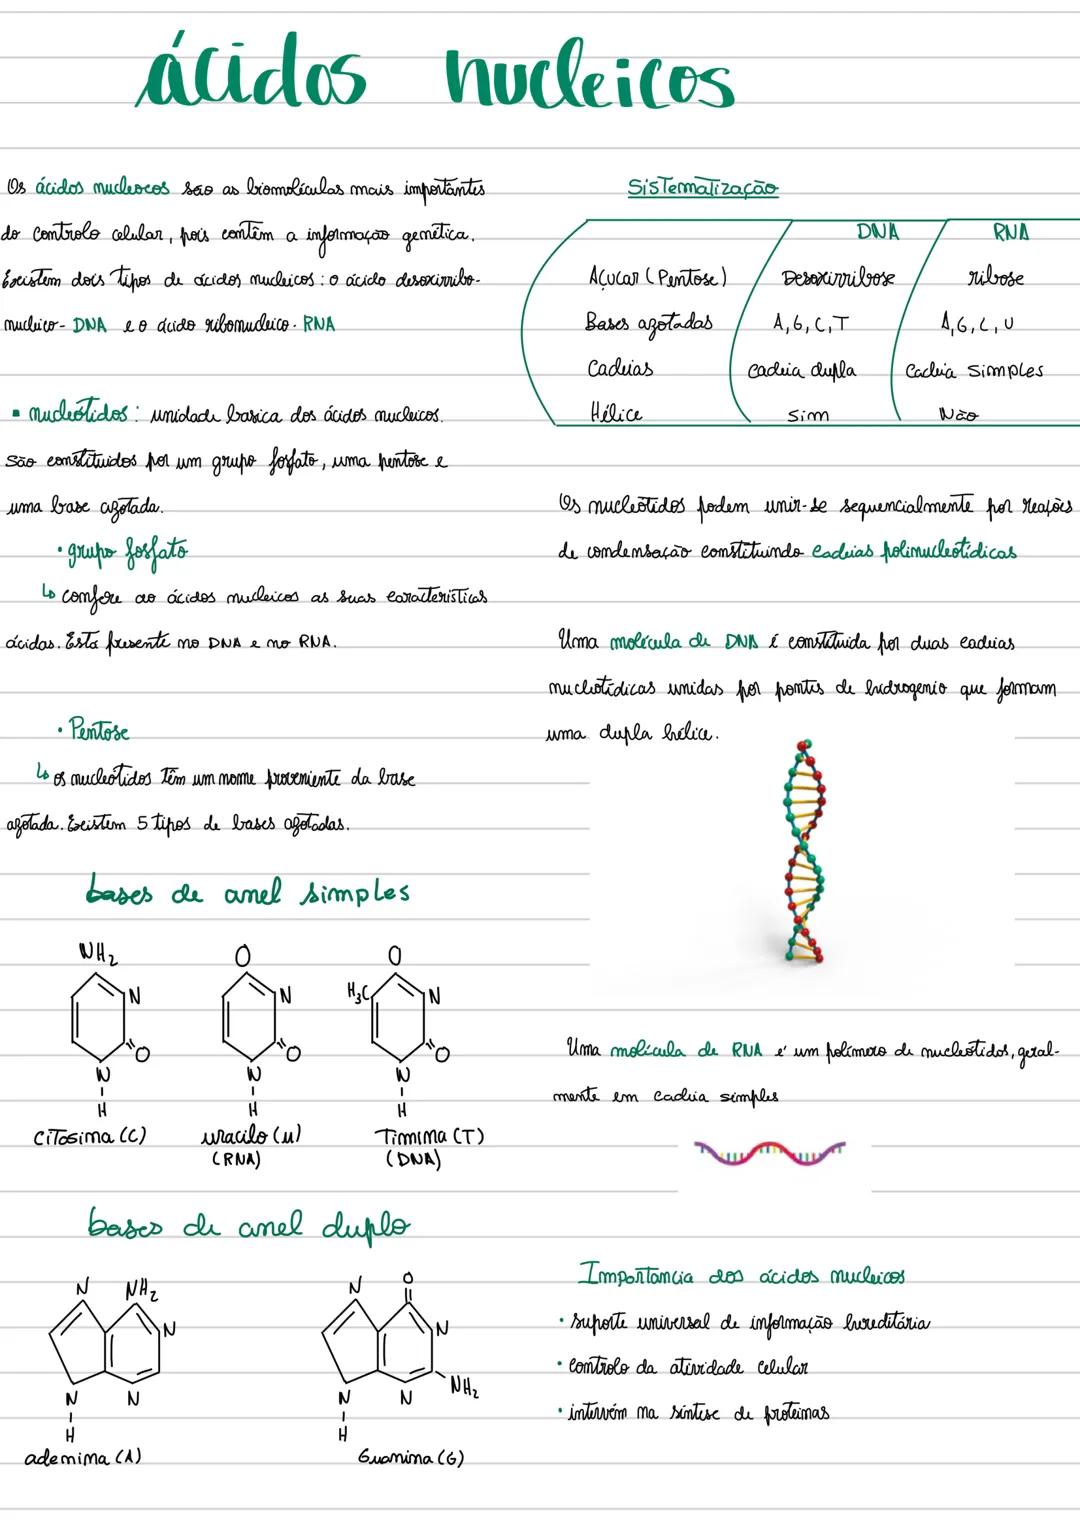 ácidos nucleicos
Os ácidos nucleocos são as biomoléculas mais importantes
do controlo celular, pois contêm a informação genética.
Existem dois tipos de ácidos nucleicos: o ácido desoxirribo-
nucleico - DNA e o ácido ribonucleico - RNA
▪ nucleótidos: unidade basica dos ácidos nucleicos.
São constituidos por um grupo fosfato, uma pentose e
uma base azotada.
• grupo fosfato
↳ confere ao ácidos nucleicos as suas caracteristicas
ácidas. Está presente no DNA e no RNA.
• Pentose
↳ os nucleótidos têm um nome proveniente da base
azotada. Existem 5 tipos de bases azotadas.
bases de anel simples
NH₂
N
O
N
H
citosina (C)
O
N
O
N
H
uracilo (U)
(RNA)
O
H₃C
N
O
N
H
Timina (T)
(DNA)
bases de anel duplo
N NH₂
N
N N
H
adenina (A)
N O
N
NH₂
N N
H
Guanina (G)
Sistematização
DNA RNA
Açucar (Pentose) Desoxirribose ribose
Bases azotadas A, G, C, T A, G, C, U
Cadeias cadeia dupla Cadeia simples
Hélice Sim Não
Os nucleótidos podem unir-se sequencialmente por reações
de condensação constituindo cadeias polinucleotídicas
Uma molécula de DNA é constituida por duas cadeias
nucleotídicas unidas por pontes de hidrogenio que formam
uma dupla hélice.
Uma molécula de RNA é um polímero de nucleótidos, geral-
mente em cadeia simples
Importancia dos ácidos nucleicos
• suporte universal de informação hereditária
• controlo da atividade celular
• intervém na síntese de proteinas